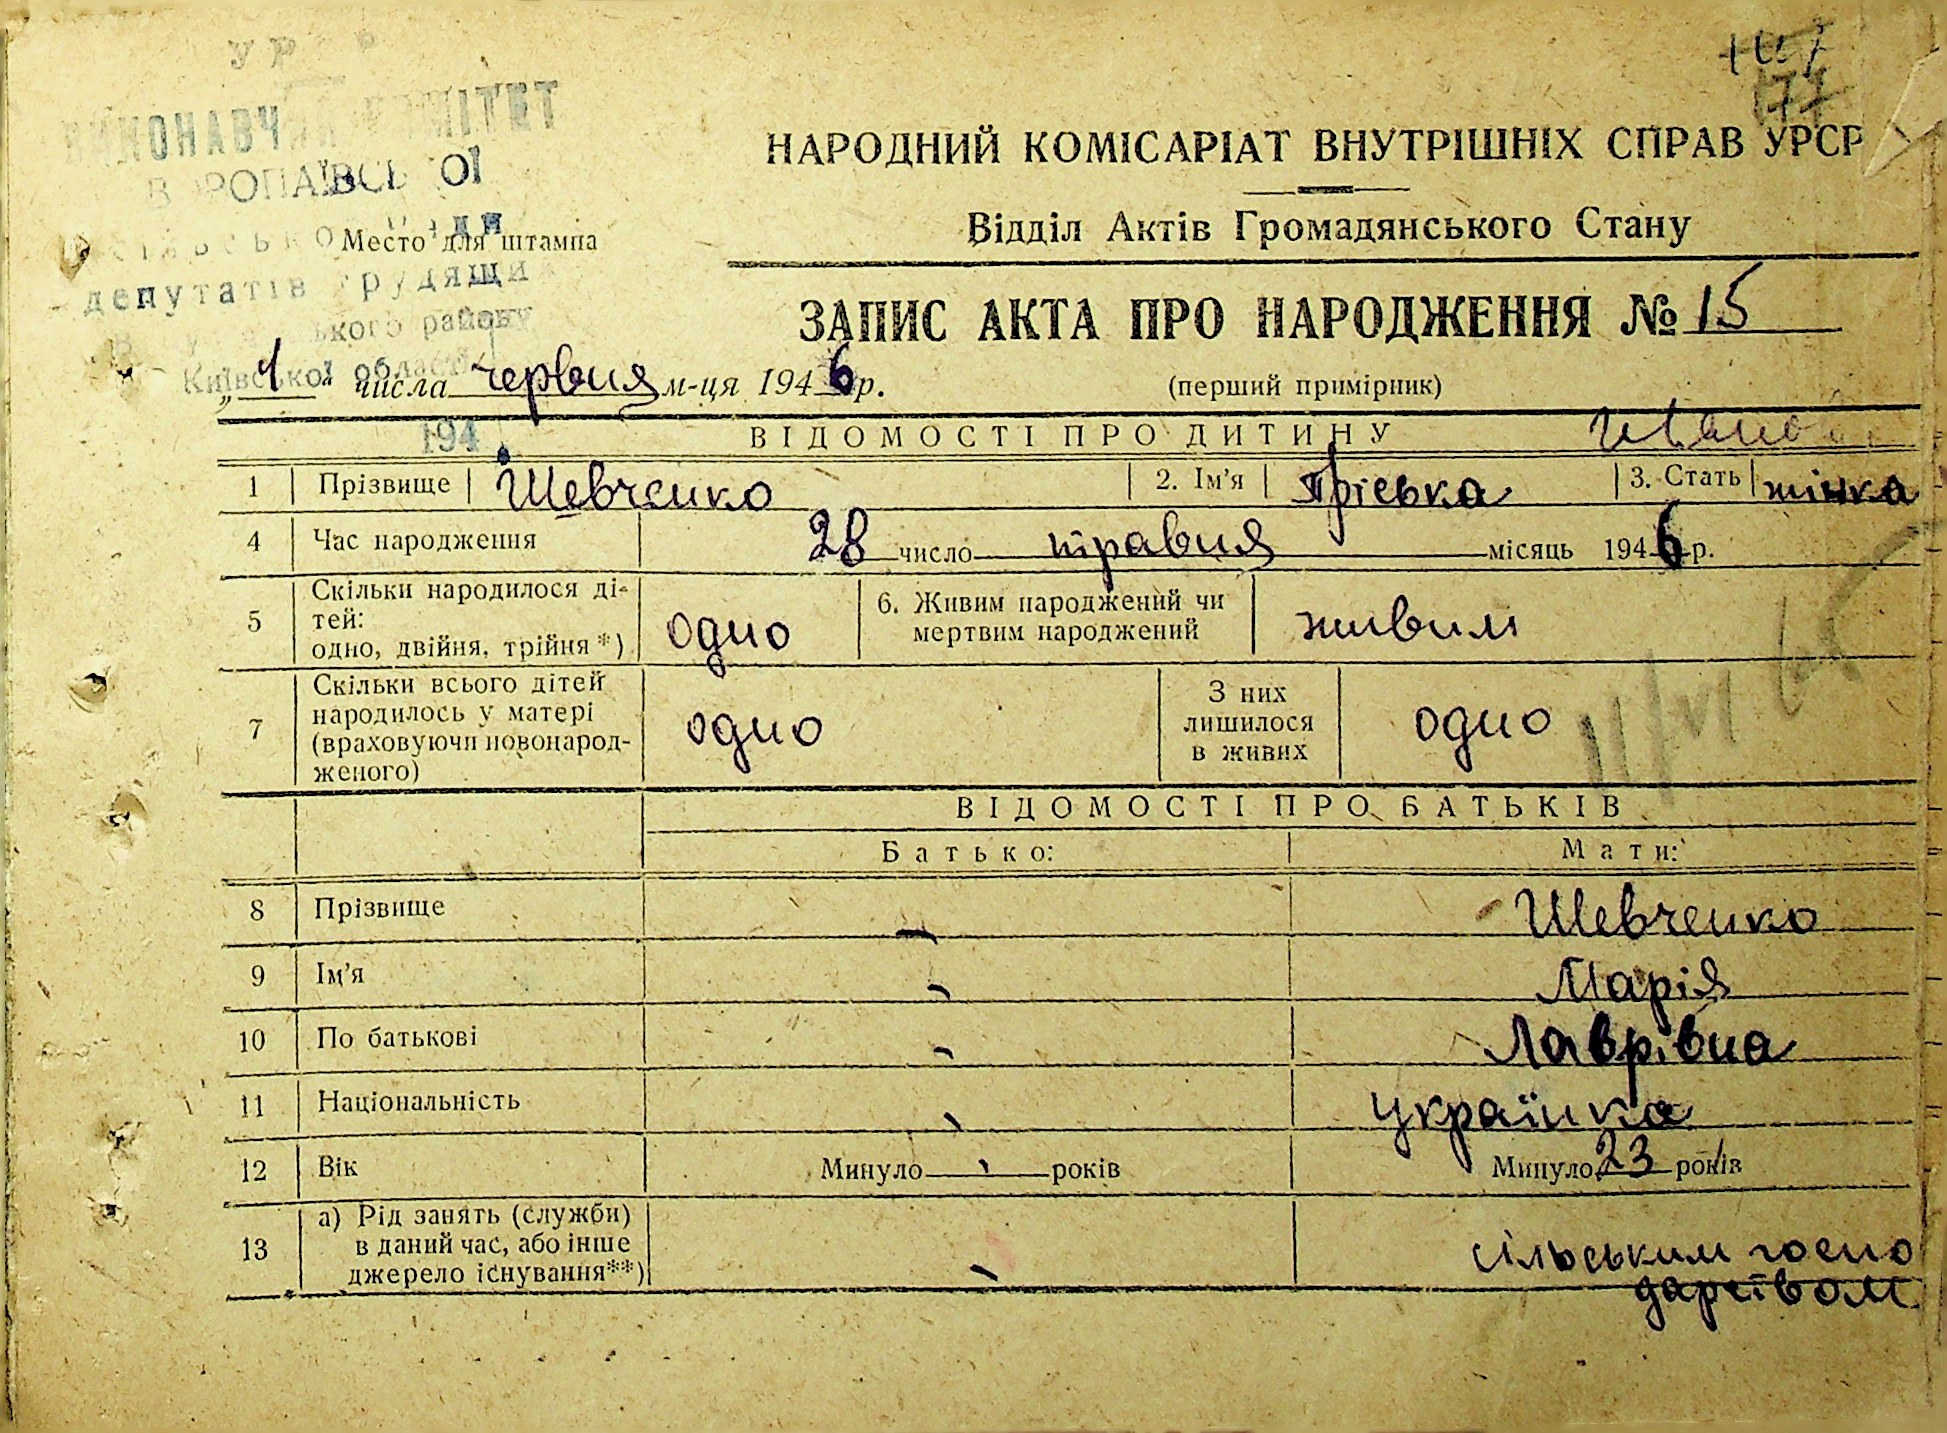 КОМІТЕТ
депутатів трудящих
ського району
Київської області
Место для штампа
194
171
НАРОДНИЙ КОМІСАРІАТ ВНУТРІШНІХ СПРАВ УРСР
Відділ Актів Громадянського Стану
ЗАПИС АКТА ПРО НАРОДЖЕННЯ № 15
„1“ числа червня м-ця 1946 р. (перший примірник)
ВІДОМОСТІ ПРО ДИТИНУ
1 Прізвище Шевченко 2. Ім'я Пріська 3. Стать жінка
4 Час народження 28 число травня місяць 1946 р.
5 Скільки народилося ді-
тей:
одно, двійня, трійня*) одно 6. Живим народжений чи
мертвим народжений живим
7 Скільки всього дітей
народилось у матері
(враховуючи новонарод-
женого) одно З них
лишилося
в живих одно
ВІДОМОСТІ ПРО БАТЬКІВ
Батько: Мати:
8 Прізвище – Шевченко
9 Ім'я - Марія
10 По батькові - Лаврівна
11 Національність - українка
12 Вік Минуло - років Минуло 23 років
13 а) Рід занять (служби)
в даний час, або інше
джерело існування**) - сільським госпо
дарством